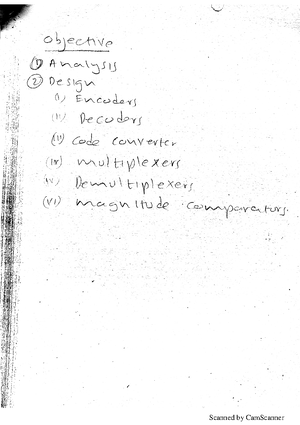 Objective
(1) Analysis
(2) Design
(i) Encoders
(ii) Decoders
(iii) Code converter
(iv) multiplexers
(v) Demultiplexers
(vi) magnitude comparators.
Scanned by CamScanner